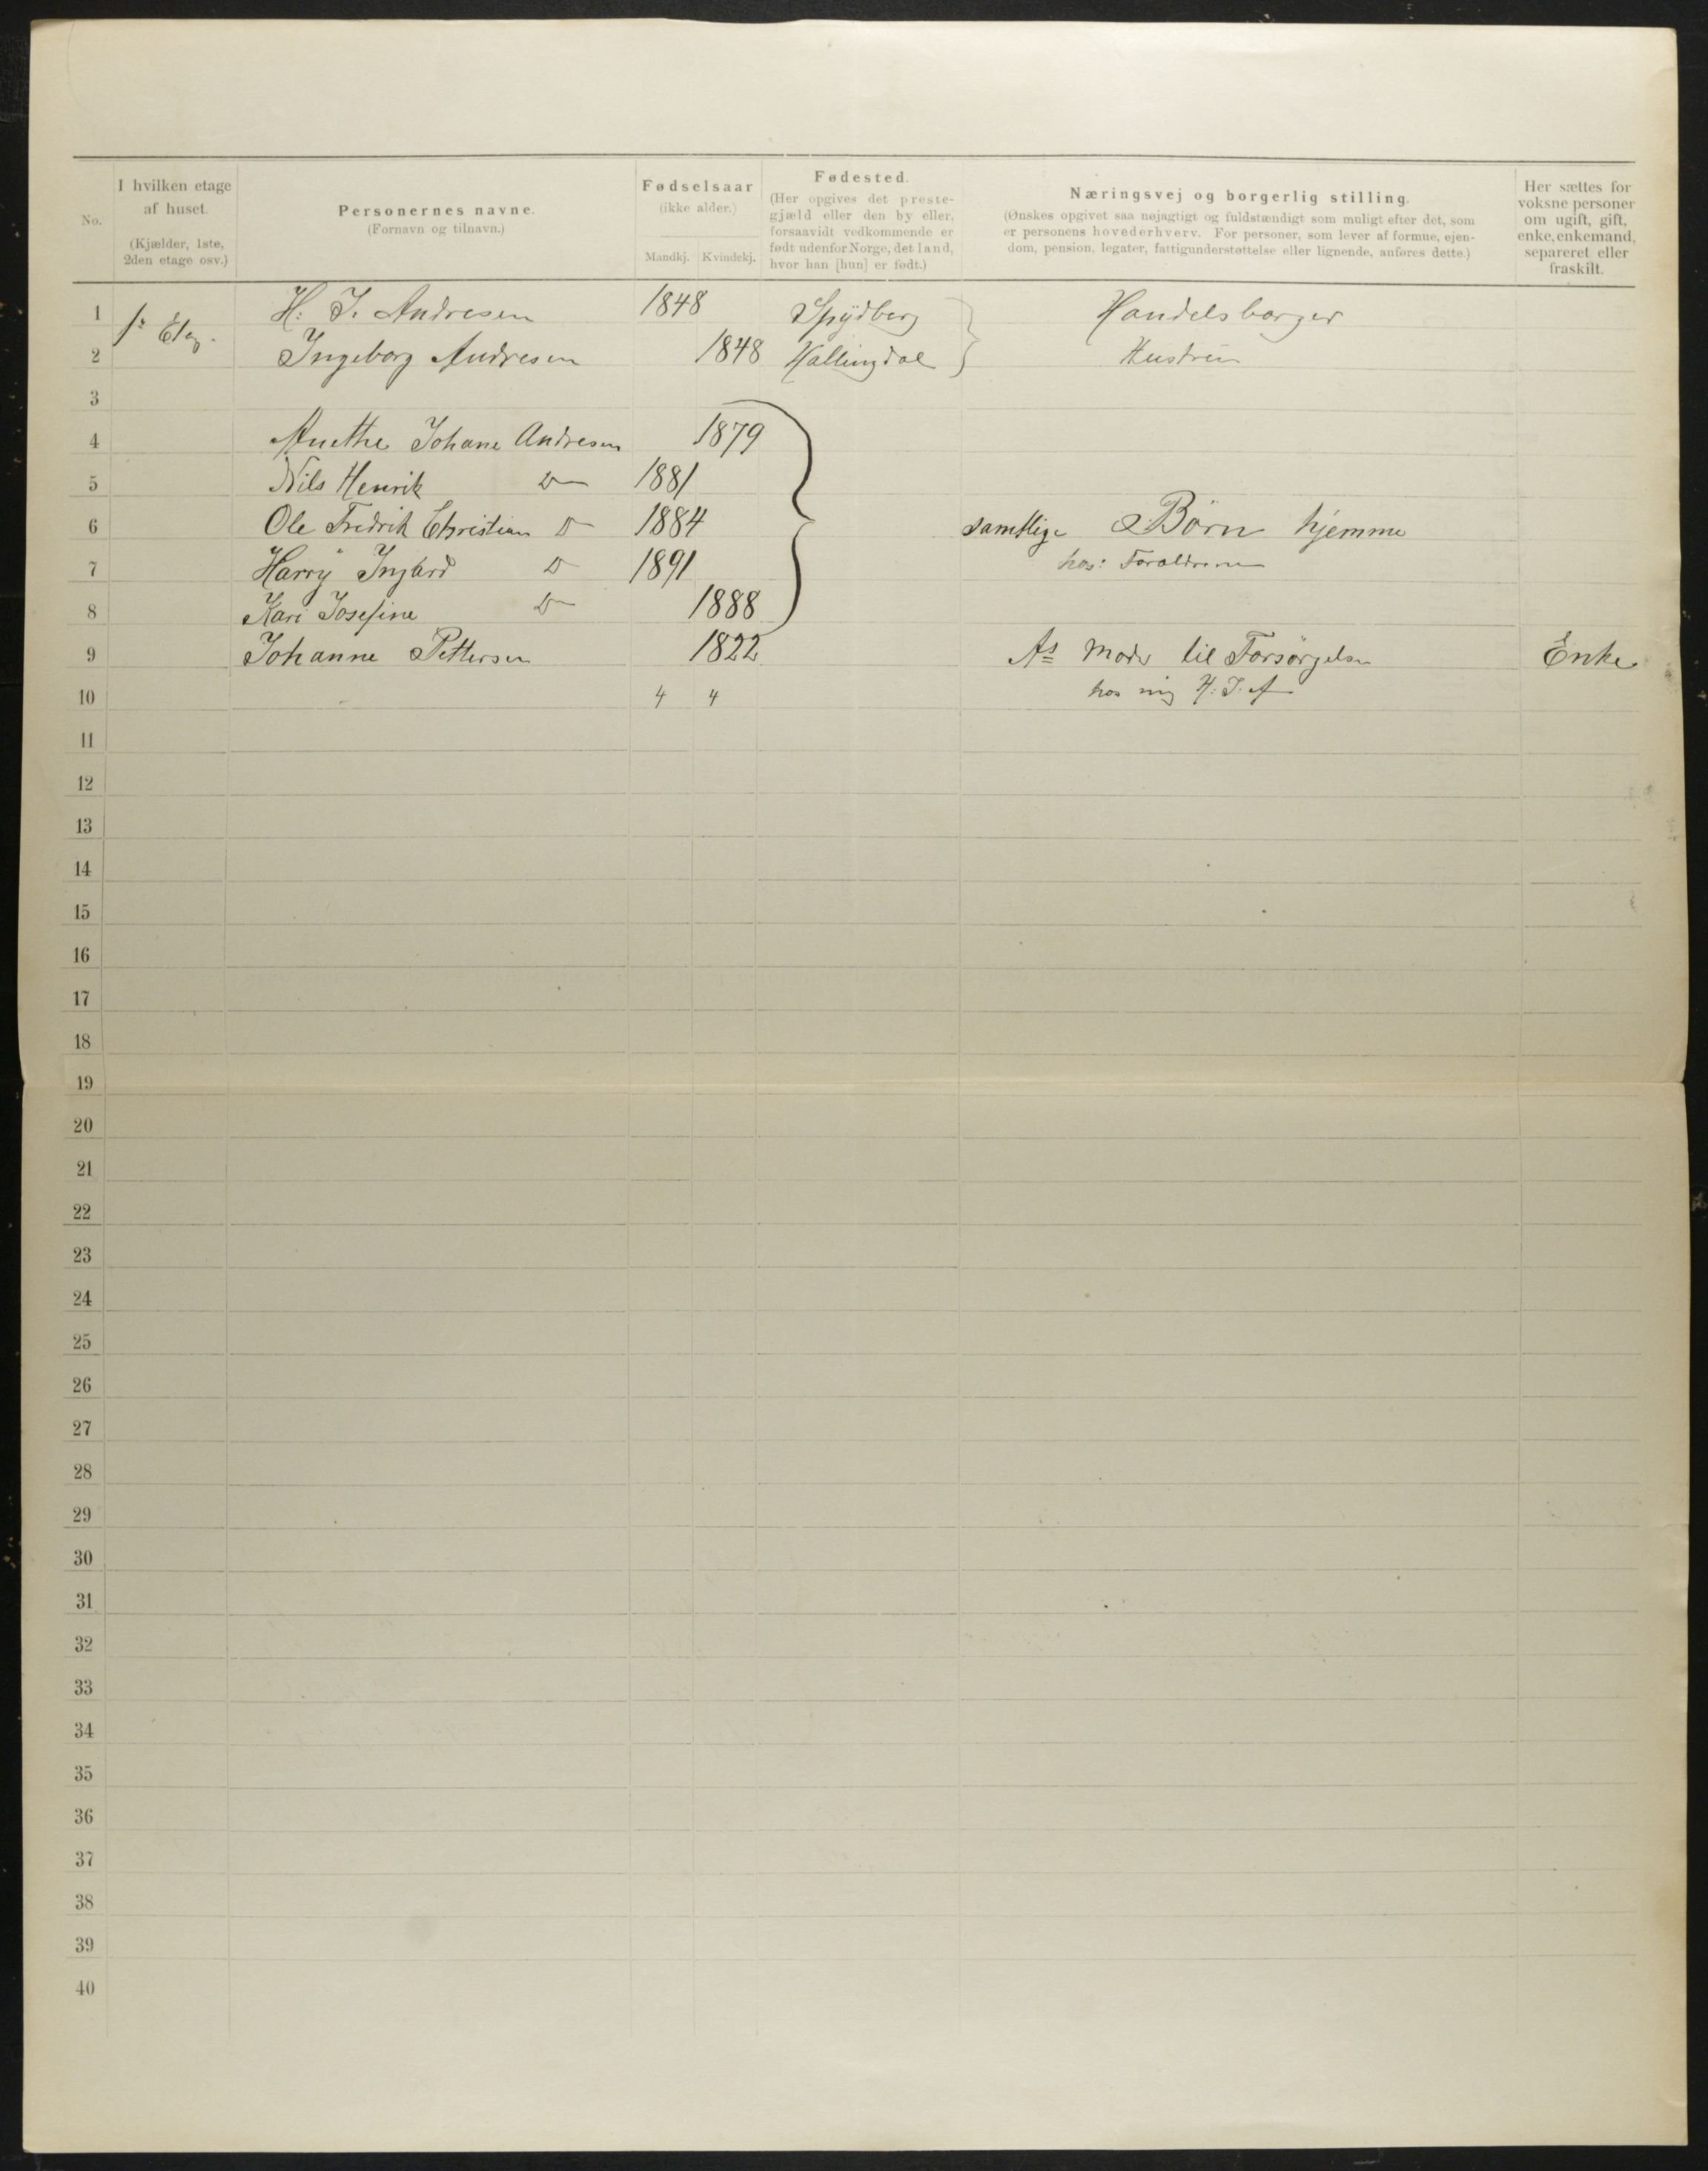 No.
I hvilken etage
af huset.
(Kjælder, 1ste,
2den etage osv.)
Personernes navne.
(Fornavn og tilnavn.)
Fødselsaar
(ikke alder.)
Mandkj. Kvindekj.
Fødested.
(Her opgives det preste-
gjæld eller den by eller,
forsaavidt vedkommende er
født udenfor Norge, det land,
hvor han [hun] er født.)
Næringsvej og borgerlig stilling.
(Ønskes opgivet saa nøjagtigt og fuldstændigt som muligt efter det, som
er personens hovederhverv. For personer, som lever af formue, ejen-
dom, pension, legater, fattigunderstøttelse eller lignende, anføres dette.)
Her sættes for
voksne personer
om ugift, gift,
enke, enkemand,
separeret eller
fraskilt.
1 1ᵉ Etag. H. J. Andresen 1848 Spydberg Handelsborger
2 Ingeborg Andresen 1848 Hallingdal Hustru
3
4 Anethe Johane Andresen 1879
5 Nils Henrik Do 1881
6 Ole Fredrik Christian Do 1884 samtlige Børn hjemme
7 Harry Ingvard Do 1891 hos: Forældrene
8 Kari Josefine Do 1888
9 Johanne Pettersen 1822 As Moder til Forsørgelse Enke
10 4 4 hos mig H. J. A
11
12
13
14
15
16
17
18
19
20
21
22
23
24
25
26
27
28
29
30
31
32
33
34
35
36
37
38
39
40